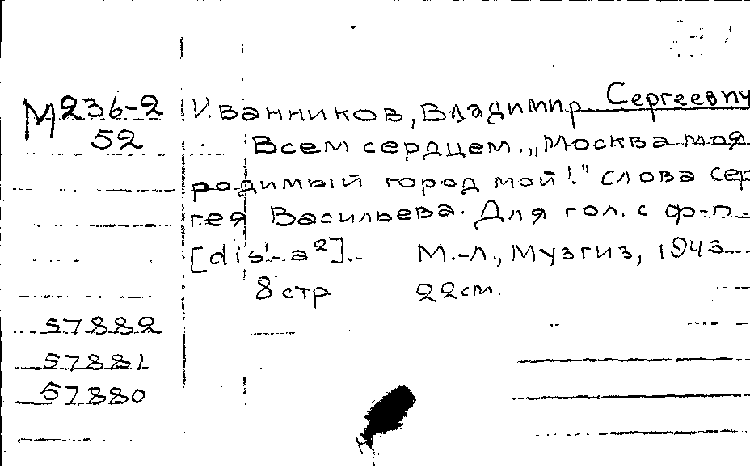 М 236-2
52
Иванников, Владимир Сергеевич
Всем сердцем. „Москва моя
родимый город мой!" слова Сер
гея Васильева. Для гол. с ф-п.
[dis¹-a²]. М.-Л., Музгиз, 1943
8 стр 22см.
57882
57881
57880